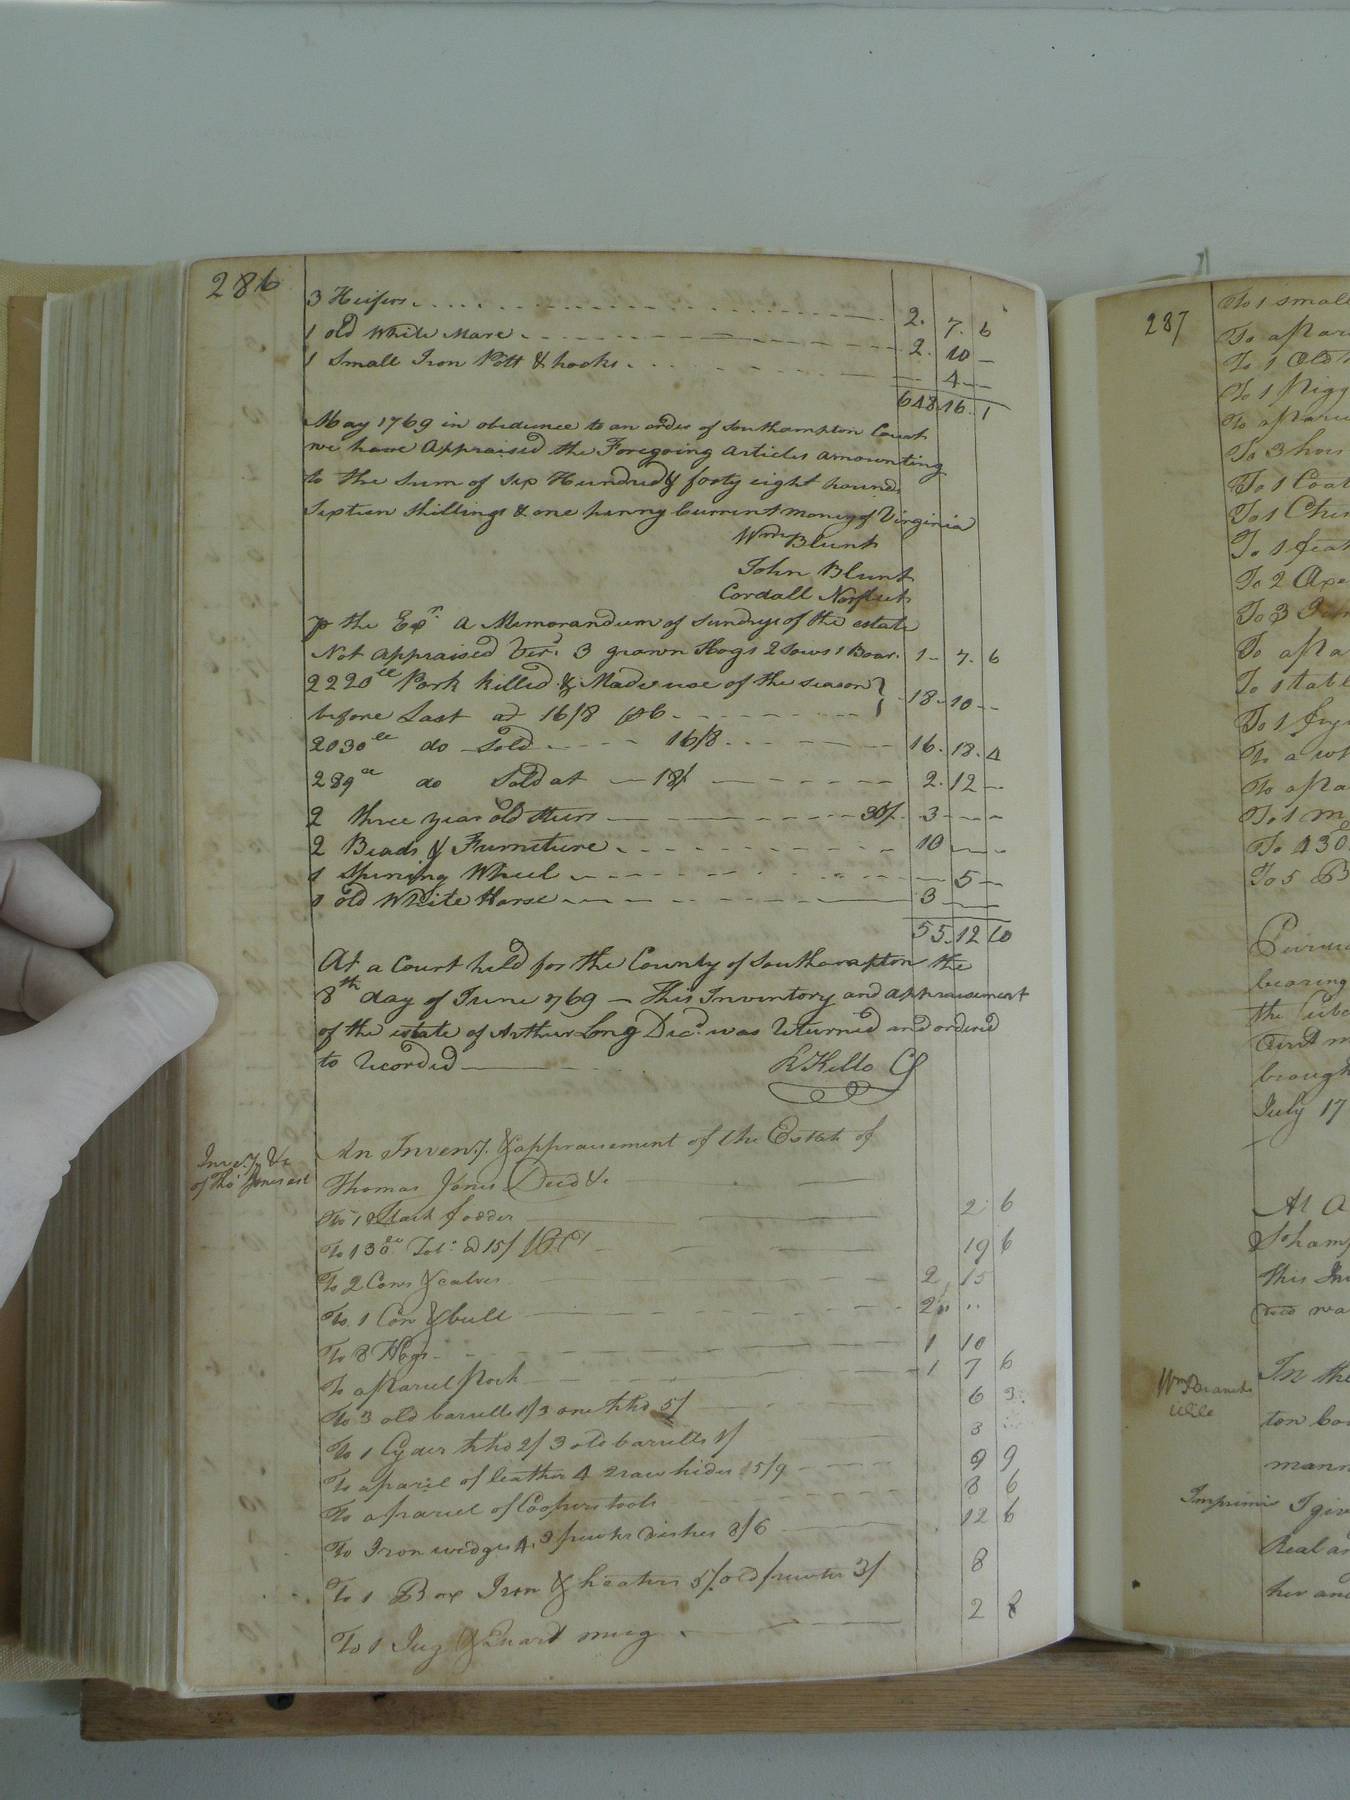 286
3 Heifers 2. 7. 6
1 old White Mare 2. 10 —
1 Small Iron Pott & hooks — 4 —
648. 16. 1
May 1769 in obedience to an order of Southampton Court
we have Appraised the Foregoing articles amounting
to the Sum of Six Hundred & forty eight pounds
Sixteen Shillings & one penny Current money of Virginia
Wm Blunt
John Blunt
Cordall Norfleet
the Exr. a Memorandum of Sundrys of the estate
Not appraised 3 grown Hogs 2 Sows 1 Boar. 1 - 7. 6
2220 Pork killed & Made use of the season
before Last at 16/8 18. 10 —
2030 do Sold 16/8 16. 18. 4
289 do Sold at — 18/ 2. 12 —
2 three year old Steers 30/. 3 — —
2 Beads & Furniture 10 — —
1 Spining Wheel — 5 —
1 old White Horse 3 — —
55. 12 10
At a Court held for the County of Southampton the
8th day of June 1769 — This Inventory and appraisement
of the estate of Arthur Long Decd. was Returned and ordered
to Recorded
R Kello Cl
Inve.ty &c
of Tho Jones est
An Inven.ty & appraisement of the Estate of
Thomas Jones Decd &c
To 1 Stack fodder 2 6
To 130 Tob. @ 15/ 19 6
To 2 Cows & calves 2 15
To 1 Cow & bull 2 " "
To 8 Hogs 1 10
To a Parcel Pork 1 7 6
To 3 old barrells 1/3 one hhd 5/ 6 3
To 1 Cyder hhd 2/ 3 old barrells 1/ 3
To a parcel of leather 4 2 raw hides 5/9 9 9
To a Parcel of Coopers tools 8 6
To Iron wedges 4. 3 pewter dishes 8/6 12 6
To 1 Box Iron & heaters 5/. old pewter 3/ 8
To 1 Jug & Quart mug 2 8
287
To 1 small
To a Par
To 1 Old
To 1 Pigg
To a Parc
To 3 
To 1 Coat
To 1 
To 1 feat
To 2 Axe
To 3 
To a Pa
To 1 tabl
To 1 
To a wh
To a Pa
To 1 m
To 130
To 5 B
bearing
the Subs
brough
July 17
At a
this In
Wm Branch
Will
In the
ton Cou
mann
Imprimis I giv
Real an
her and